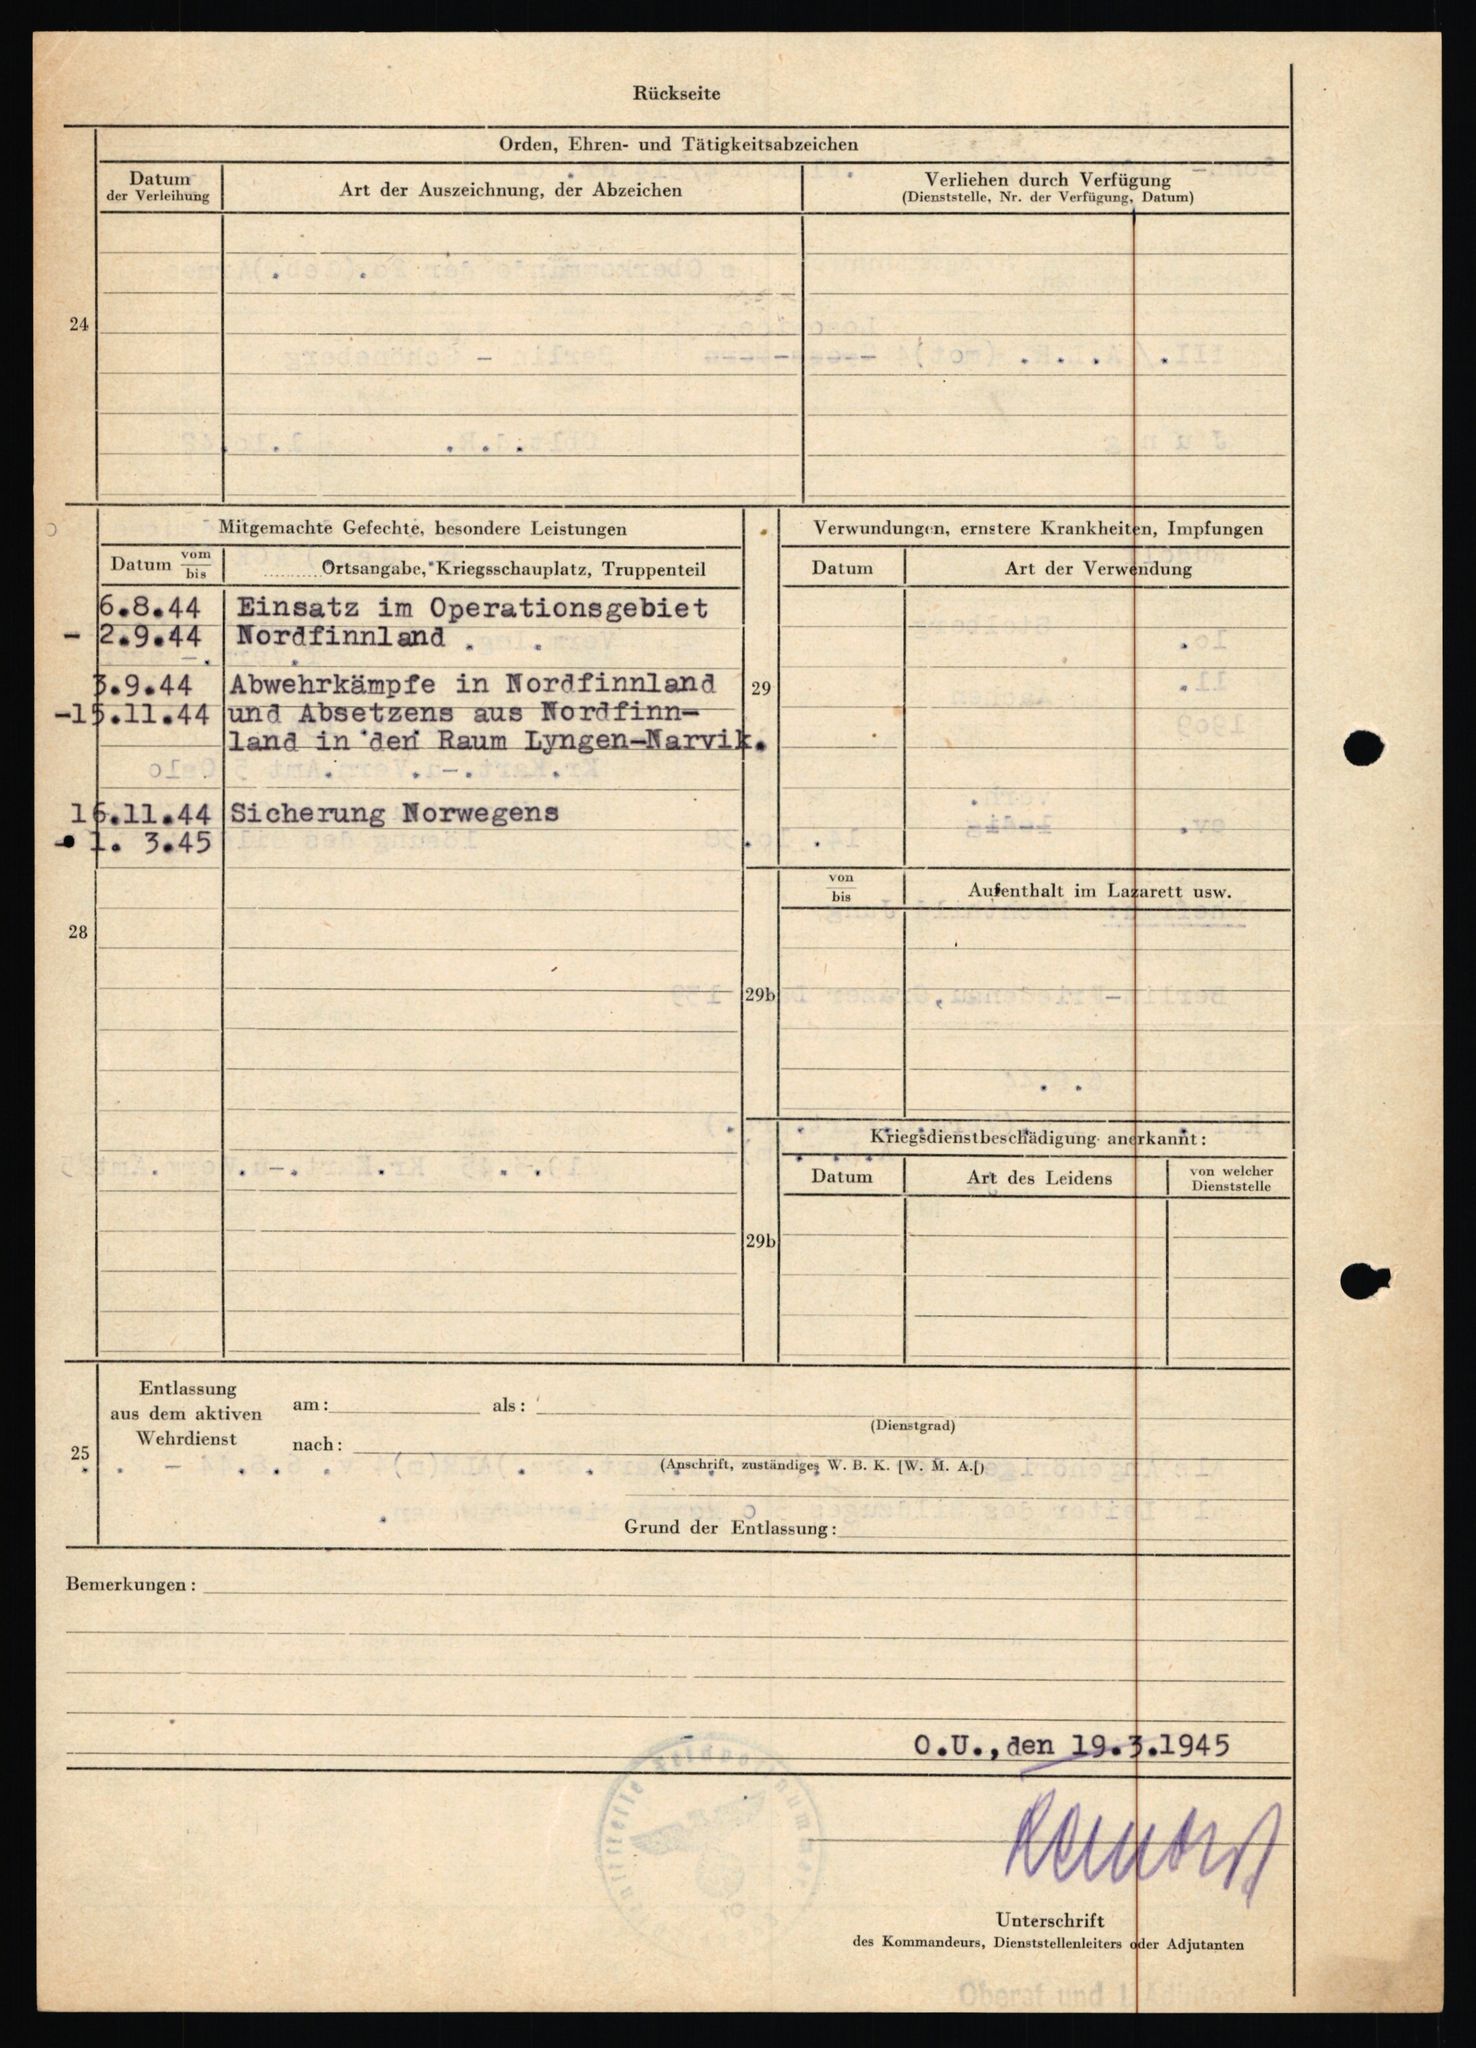 Rückseite
Orden, Ehren- und Tätigkeitsabzeichen
Datum
der Verleihung
Art der Auszeichnung, der Abzeichen
Verliehen durch Verfügung
(Dienststelle, Nr. der Verfügung, Datum)
24
Mitgemachte Gefechte, besondere Leistungen
Datum vom
bis
Ortsangabe, Kriegsschauplatz, Truppenteil
6.8.44 Einsatz im Operationsgebiet
- 2.9.44 Nordfinnland .
3.9.44 Abwehrkämpfe in Nordfinnland
-15.11.44 und Absetzens aus Nordfinn-
land in den Raum Lyngen-Narvik.
16.11.44 Sicherung Norwegens
- 1. 3.45
28
29
Verwundungen, ernstere Krankheiten, Impfungen
Datum
Art der Verwendung
von
bis
Aufenthalt im Lazarett usw.
29b
Kriegsdienstbeschädigung anerkannt:
Datum
Art des Leidens
von welcher
Dienststelle
29b
25
Entlassung
aus dem aktiven
Wehrdienst
am: als:
(Dienstgrad)
nach:
(Anschrift, zuständiges W. B. K. [W. M. A.])
Grund der Entlassung:
Bemerkungen:
O.U., den 19.3.1945
Unterschrift
des Kommandeurs, Dienststellenleiters oder Adjutanten
Oberst und 1. Adjutant